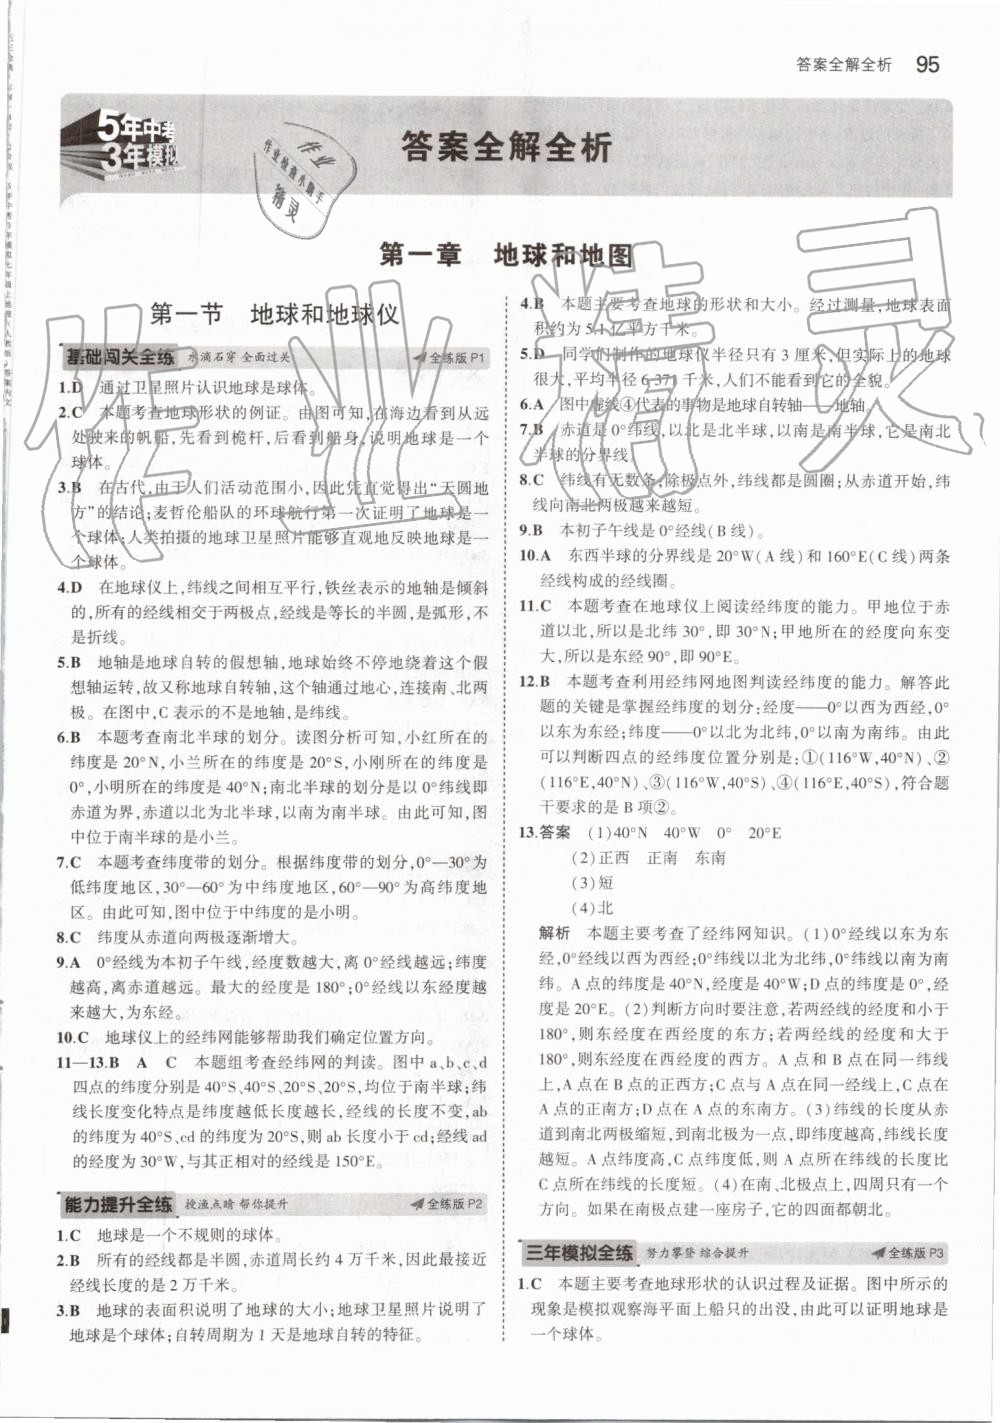 答案全解全析 95
5年中考
3年模拟
答案全解全析
第一章 地球和地图
第一节 地球和地球仪
基础闯关全练 水滴石穿 全面过关 全练版P1
1.D 通过卫星照片认识地球是球体。
2.C 本题考查地球形状的例证。由图可知,在海边看到从远
处驶来的帆船,先看到桅杆,后看到船身,说明地球是一个
球体。
3.B 在古代,由于人们活动范围小,因此凭直觉得出“天圆地
方”的结论;麦哲伦船队的环球航行第一次证明了地球是一
个球体;人类拍摄的地球卫星照片能够直观地反映地球是一
个球体。
4.D 在地球仪上,纬线之间相互平行,铁丝表示的地轴是倾斜
的,所有的经线相交于两极点,经线是等长的半圆,是弧形,不
是折线。
5.B 地轴是地球自转的假想轴,地球始终不停地绕着这个假
想轴运转,故又称地球自转轴,这个轴通过地心,连接南、北两
极。在图中,C表示的不是地轴,是纬线。
6.B 本题考查南北半球的划分。读图分析可知,小红所在的
纬度是20°N,小兰所在的纬度是20°S,小刚所在的纬度是
0°,小明所在的纬度是40°N;南北半球的划分是以0°纬线即
赤道为界,赤道以北为北半球,以南为南半球。由此可知,图
中位于南半球的是小兰。
7.C 本题考查纬度带的划分。根据纬度带的划分,0°—30°为
低纬度地区,30°—60°为中纬度地区,60°—90°为高纬度地
区。由此可知,图中位于中纬度的是小明。
8.C 纬度从赤道向两极逐渐增大。
9.A 0°经线为本初子午线,经度数越大,离0°经线越远;纬度
越高,离赤道越远。最大的经度是180°;0°经线以东经度越
来越大,为东经。
10.C 地球仪上的经纬网能够帮助我们确定位置方向。
11—13.B A C 本题组考查经纬网的判读。图中a、b、c、d
四点的纬度分别是40°S、40°S、20°S、20°S,均位于南半球;纬
线长度变化特点是纬度越低长度越长,经线的长度不变,ab
的纬度为40°S、cd的纬度为20°S,则ab长度小于cd;经线ad
的经度为30°W,与其正相对的经线是150°E。
能力提升全练 授渔点睛 帮你提升 全练版P2
1.C 地球是一个不规则的球体。
2.B 所有的经线都是半圆,赤道周长约4万千米,因此最接近
经线长度的是2万千米。
3.B 地球的表面积说明了地球的大小;地球卫星照片说明了
地球是个球体;自转周期为1天是地球自转的特征。
4.B 本题主要考查地球的形状和大小。经过测量,地球表面
积约为5.1亿平方千米。
5.D 同学们制作的地球仪半径只有3厘米,但实际上的地球
很大,平均半径6 371千米,人们不能看到它的全貌。
6.A 图中虚线④代表的事物是地球自转轴——地轴。
7.B 赤道是0°纬线,以北是北半球,以南是南半球,它是南北
半球的分界线。
8.C 纬线有无数条;除极点外,纬线都是圆圈;从赤道开始,纬
线向南北两极越来越短。
9.B 本初子午线是0°经线(B线)。
10.A 东西半球的分界线是20°W(A线)和160°E(C线)两条
经线构成的经线圈。
11.C 本题考查在地球仪上阅读经纬度的能力。甲地位于赤
道以北,所以是北纬30°,即30°N;甲地所在的经度向东变
大,所以是东经90°,即90°E。
12.B 本题考查利用经纬网地图判读经纬度的能力。解答此
题的关键是掌握经纬度的划分:经度——0°以西为西经,0°
以东为东经;纬度——0°以北为北纬,0°以南为南纬。由此
可以判断四点的经纬度位置分别是:①(116°W,40°N)、②
(116°E,40°N)、③(116°W,40°S)、④(116°E,40°S),符合题
干要求的是B项②。
13.答案 (1)40°N 40°W 0° 20°E
(2)正西 正南 东南
(3)短
(4)北
解析 本题主要考查了经纬网知识。(1)0°经线以东为东
经,0°经线以西为西经;0°纬线以北为北纬,0°纬线以南为南
纬。A点的纬度是40°N,经度是40°W;D点的纬度是0°,经
度是20°E。(2)判断方向时要注意,若两经线的经度和小于
180°,则东经度在西经度的东方;若两经线的经度和大于
180°,则东经度在西经度的西方。A点和B点在同一纬线
上,A点在B点的正西方;C点与A点在同一经线上,C点在
A点的正南方;D点在A点的东南方。(3)纬线的长度从赤
道到南北两极缩短,到南北极为一点,即纬度越高,纬线长度
越短。A点纬度高,C点纬度低,则A点所在纬线的长度比
C点所在纬线的长度短。(4)在南、北极点上,四周只有一个
方向。如果在南极点建一座房子,它的四面都朝北。
三年模拟全练 努力攀登 综合提升 全练版P3
1.C 本题主要考查地球形状的认识过程及证据。图中所示的
现象是模拟观察海平面上船只的出没,由此可以证明地球是
一个球体。
作业
作业检查小助手
精灵
作业精灵